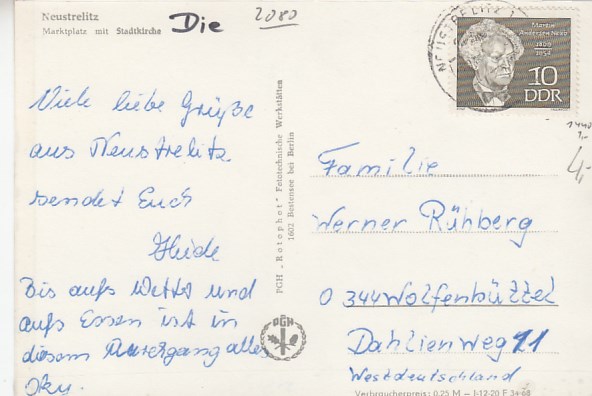 Neustrelitz
Marktplatz mit Stadtkirche
Die
2080
Viele liebe Grüße
aus Neustrelitz
sendet Euch
Heide
Bis aufs Wetter und
aufs Essen ist in
diesem alles
oky.
PGH „Rotophot“ Fototechnische Werkstätten
1602 Bestensee bei Berlin
PGH
NEUSTRELITZ 1
Martin
Andersen Nexö
1869
1954
10
DDR
1440
1,-
4,-
Familie
Werner Rühberg
0 344 Wolfenbüttel
Dahlienweg 11
Westdeutschland
Verbraucherpreis: 0,25 M – I-12-20 F 34-68